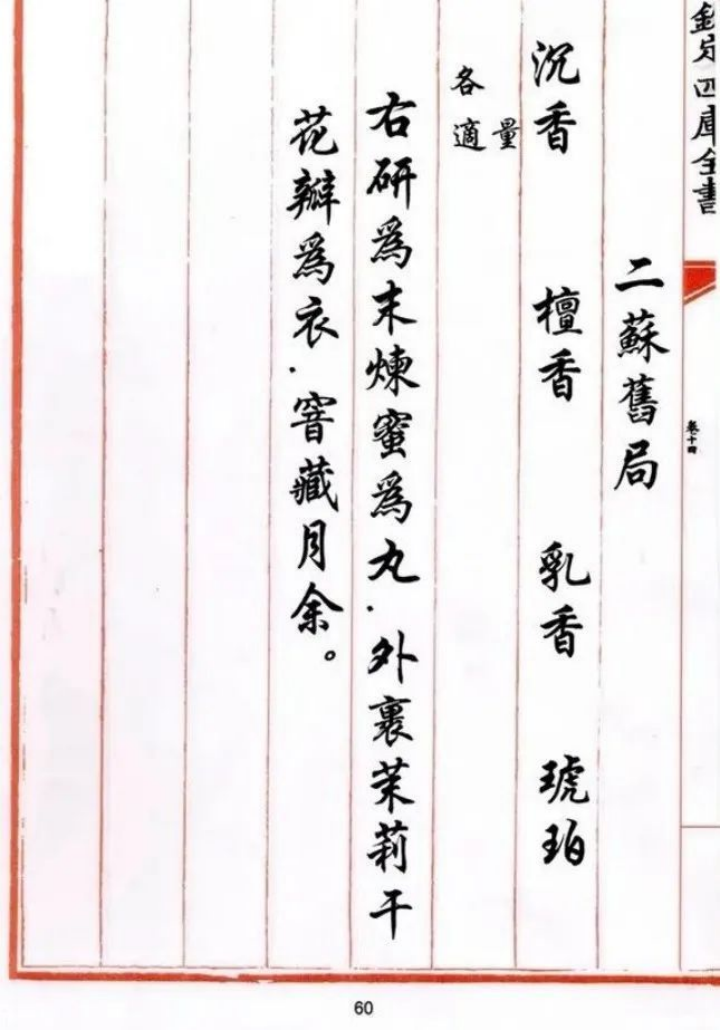 欽定四庫全書
卷十四
二蘇舊局
沉香 檀香 乳香 琥珀
各適量
右研為末煉蜜為丸．外裹茉莉干
花瓣為衣．窨藏月余。
60